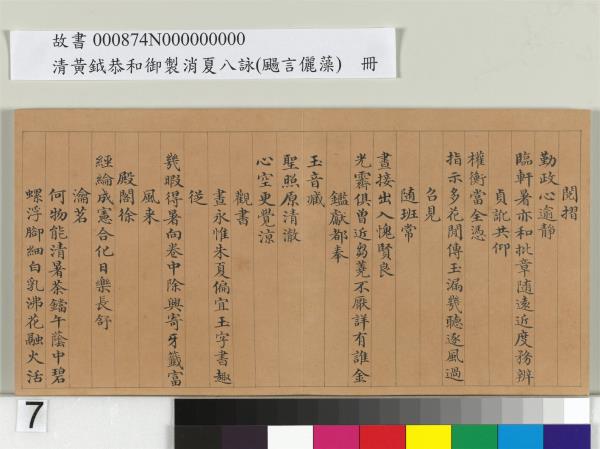 故書 000874N000000000
清黃鉞恭和御製消夏八詠(颺言儷藻) 冊
閱摺
勤政心逾靜
臨軒暑亦和批章隨遠近度務辨
貞訛共仰
權衡當全憑
指示多花間傳玉漏幾聽逐風過
召見
隨班常
晝接出入愧賢良
光霽俱曾近芻蕘不厭詳有誰金
鑑獻都奉
玉音臧
聖照原清澈
心空更覺涼
觀書
晝永惟朱夏偏宜玉宇書趣
從
幾暇得暑向卷中除興寄牙籤富
風来
殿閣徐
經綸成憲合化日樂長舒
瀹茗
何物能清暑茶鐺午蔭中碧
螺浮腳細白乳沸花融火活
7